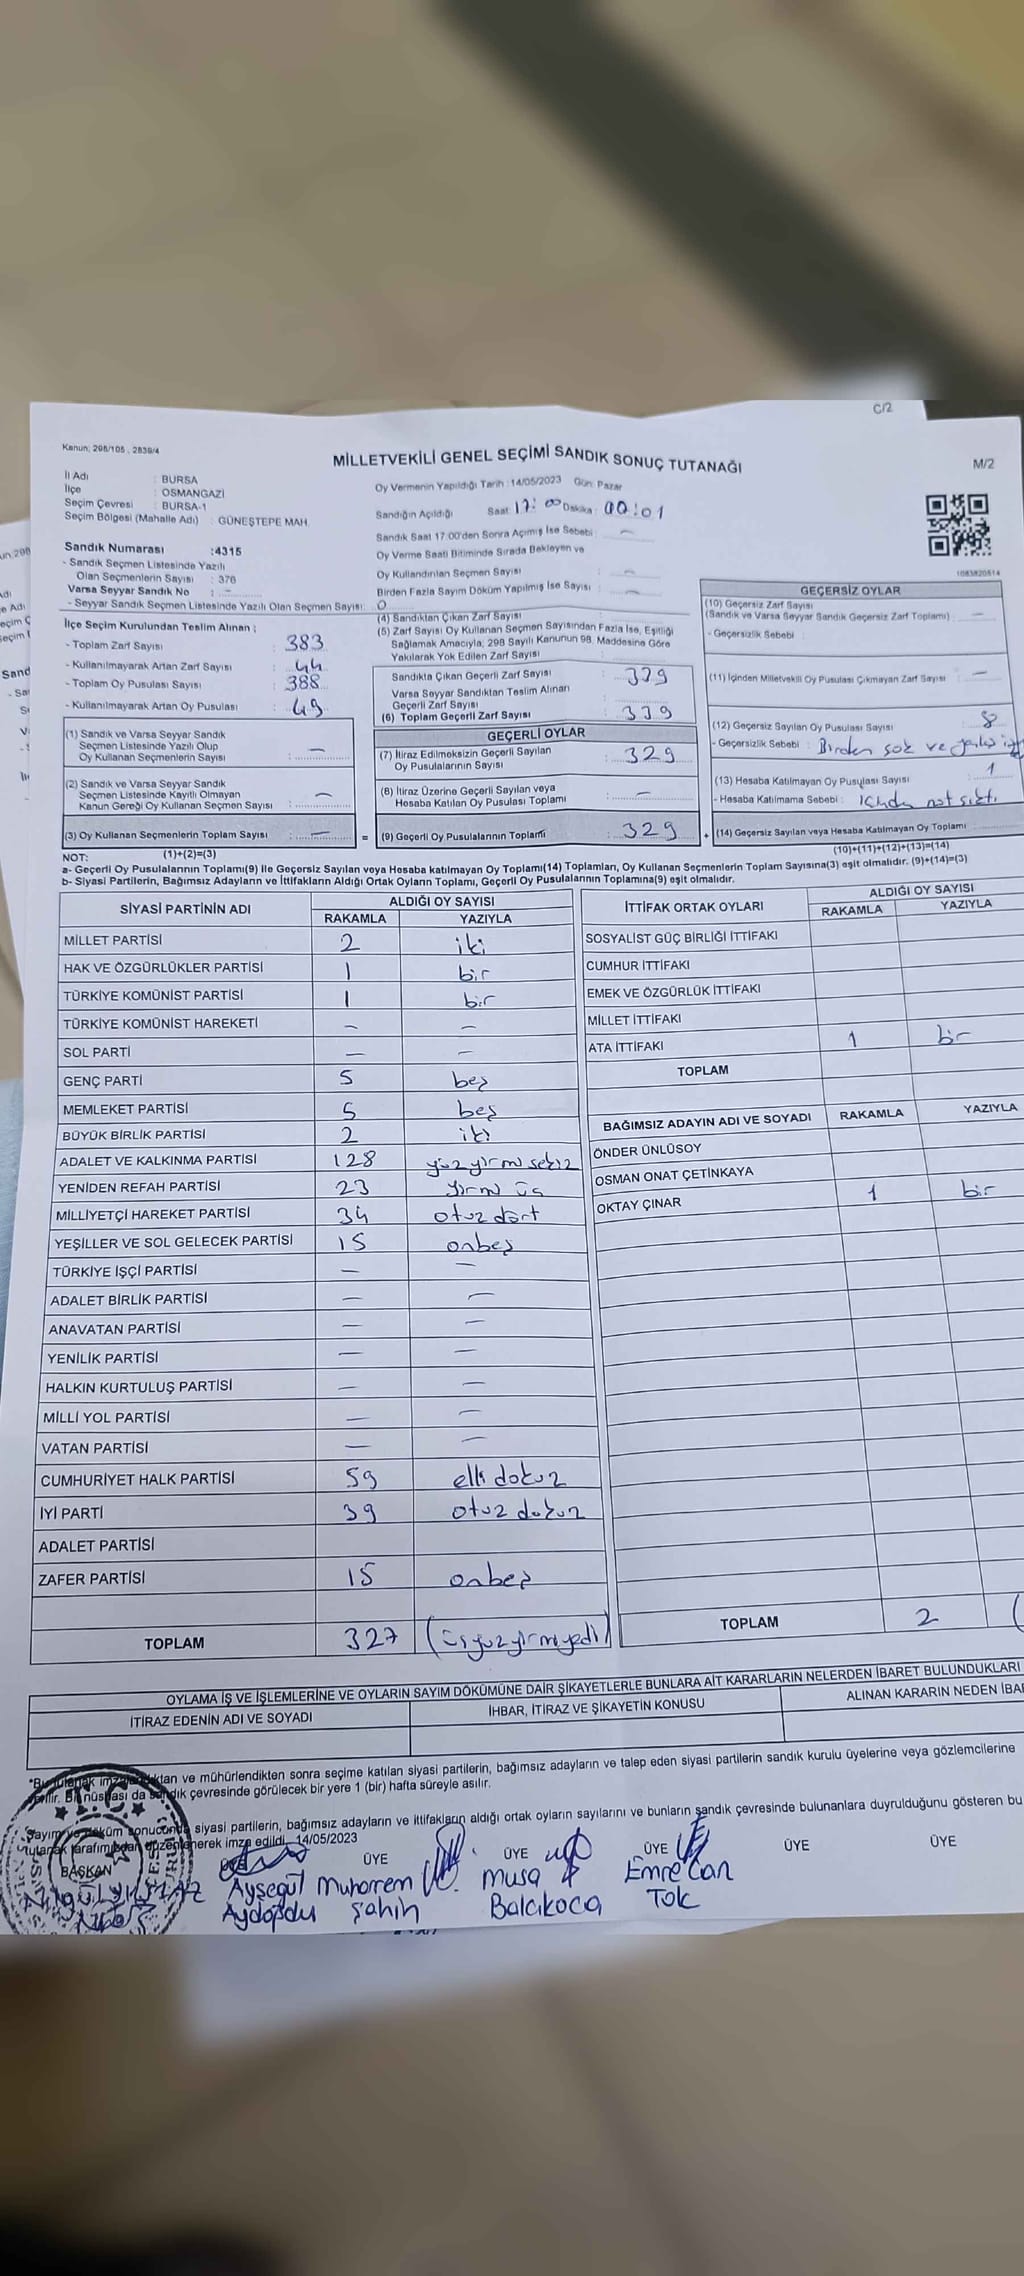 C/2
Kanun: 298/105 , 2839/4
MİLLETVEKİLİ GENEL SEÇİMİ SANDIK SONUÇ TUTANAĞI
M/2
İl Adı : BURSA
İlçe : OSMANGAZİ
Seçim Çevresi : BURSA-1
Seçim Bölgesi (Mahalle Adı) : GÜNEŞTEPE MAH.
Oy Vermenin Yapıldığı Tarih : 14/05/2023 Gün: Pazar
Sandığın Açıldığı Saat 17:00 Dakika : 00:01
Sandık Saat 17:00'den Sonra Açımış İse Sebebi : —
Oy Verme Saati Bitiminde Sırada Bekleyen ve
Oy Kullandırılan Seçmen Sayısı : —
Birden Fazla Sayım Döküm Yapılmış İse Sayısı : —
Sandık Numarası :4315
- Sandık Seçmen Listesinde Yazılı
Olan Seçmenlerin Sayısı : 376
Varsa Seyyar Sandık No : —
- Seyyar Sandık Seçmen Listesinde Yazılı Olan Seçmen Sayısı: 0
İlçe Seçim Kurulundan Teslim Alınan ;
- Toplam Zarf Sayısı : 383
- Kullanılmayarak Artan Zarf Sayısı : 44
- Toplam Oy Pusulası Sayısı : 388
- Kullanılmayarak Artan Oy Pusulası : 49
(1) Sandık ve Varsa Seyyar Sandık
Seçmen Listesinde Yazılı Olup
Oy Kullanan Seçmenlerin Sayısı : —
(2) Sandık ve Varsa Seyyar Sandık
Seçmen Listesinde Kayıtlı Olmayan
Kanun Gereği Oy Kullanan Seçmen Sayısı : —
(3) Oy Kullanan Seçmenlerin Toplam Sayısı : — =
(4) Sandıktan Çıkan Zarf Sayısı :
(5) Zarf Sayısı Oy Kullanan Seçmen Sayısından Fazla İse, Eşitliği
Sağlamak Amacıyla, 298 Sayılı Kanunun 98. Maddesine Göre
Yakılarak Yok Edilen Zarf Sayısı :
Sandıkta Çıkan Geçerli Zarf Sayısı : 339
Varsa Seyyar Sandıktan Teslim Alınan
Geçerli Zarf Sayısı :
(6) Toplam Geçerli Zarf Sayısı : 339
GEÇERLİ OYLAR
(7) İtiraz Edilmeksizin Geçerli Sayılan
Oy Pusulalarının Sayısı : 329
(8) İtiraz Üzerine Geçerli Sayılan veya
Hesaba Katılan Oy Pusulası Toplamı : —
(9) Geçerli Oy Pusulalarının Toplamı : 329 +
1083820514
GEÇERSİZ OYLAR
(10) Geçersiz Zarf Sayısı
(Sandık ve Varsa Seyyar Sandık Geçersiz Zarf Toplamı) : —
- Geçersizlik Sebebi :
(11) İçinden Milletvekili Oy Pusulası Çıkmayan Zarf Sayısı : —
(12) Geçersiz Sayılan Oy Pusulası Sayısı : 8
- Geçersizlik Sebebi : Birden çok ve
(13) Hesaba Katılmayan Oy Pusulası Sayısı : 1
- Hesaba Katılmama Sebebi : içinden not çıktı.
(14) Geçersiz Sayılan veya Hesaba Katılmayan Oy Toplamı
NOT: (1)+(2)=(3)
(10)+(11)+(12)+(13)=(14)
a- Geçerli Oy Pusulalarının Toplamı(9) İle Geçersiz Sayılan veya Hesaba katılmayan Oy Toplamı(14) Toplamları, Oy Kullanan Seçmenlerin Toplam Sayısına(3) eşit olmalıdır. (9)+(14)=(3)
b- Siyasi Partilerin, Bağımsız Adayların ve İttifakların Aldığı Ortak Oyların Toplamı, Geçerli Oy Pusulalarının Toplamına(9) eşit olmalıdır.
SİYASİ PARTİNİN ADI ALDIĞI OY SAYISI
RAKAMLA YAZIYLA
MİLLET PARTİSİ 2 iki
HAK VE ÖZGÜRLÜKLER PARTİSİ 1 bir
TÜRKİYE KOMÜNİST PARTİSİ 1 bir
TÜRKİYE KOMÜNİST HAREKETİ — —
SOL PARTİ — —
GENÇ PARTİ 5 beş
MEMLEKET PARTİSİ 5 beş
BÜYÜK BİRLİK PARTİSİ 2 iki
ADALET VE KALKINMA PARTİSİ 128 yüz yirmi sekiz
YENİDEN REFAH PARTİSİ 23 yirmi üç
MİLLİYETÇİ HAREKET PARTİSİ 34 otuz dört
YEŞİLLER VE SOL GELECEK PARTİSİ 15 onbeş
TÜRKİYE İŞÇİ PARTİSİ — —
ADALET BİRLİK PARTİSİ — —
ANAVATAN PARTİSİ — —
YENİLİK PARTİSİ — —
HALKIN KURTULUŞ PARTİSİ — —
MİLLİ YOL PARTİSİ — —
VATAN PARTİSİ — —
CUMHURİYET HALK PARTİSİ 59 elli dokuz
İYİ PARTİ 39 otuz dokuz
ADALET PARTİSİ
ZAFER PARTİSİ 15 onbeş
TOPLAM 327 (üçyüzyirmiyedi)
İTTİFAK ORTAK OYLARI ALDIĞI OY SAYISI
RAKAMLA YAZIYLA
SOSYALİST GÜÇ BİRLİĞİ İTTİFAKI
CUMHUR İTTİFAKI
EMEK VE ÖZGÜRLÜK İTTİFAKI
MİLLET İTTİFAKI
ATA İTTİFAKI 1 bir
TOPLAM
BAĞIMSIZ ADAYIN ADI VE SOYADI RAKAMLA YAZIYLA
ÖNDER ÜNLÜSOY
OSMAN ONAT ÇETİNKAYA
OKTAY ÇINAR 1 bir
TOPLAM 2 (
OYLAMA İŞ VE İŞLEMLERİNE VE OYLARIN SAYIM DÖKÜMÜNE DAİR ŞİKAYETLERLE BUNLARA AİT KARARLARIN NELERDEN İBARET BULUNDUKLARI
İTİRAZ EDENİN ADI VE SOYADI İHBAR, İTİRAZ VE ŞİKAYETİN KONUSU ALINAN KARARIN NEDEN İBA
*Bu tutanak imzalandıktan ve mühürlendikten sonra seçime katılan siyasi partilerin, bağımsız adayların ve talep eden siyasi partilerin sandık kurulu üyelerine veya gözlemcilerine
verilir. Bir nüshası da sandık çevresinde görülecek bir yere 1 (bir) hafta süreyle asılır.
Sayım ve döküm sonucunda siyasi partilerin, bağımsız adayların ve ittifakların aldığı ortak oyların sayılarını ve bunların sandık çevresinde bulunanlara duyrulduğunu gösteren bu
tutanak tarafımızdan düzenlenerek imza edildi. 14/05/2023
BAŞKAN ÜYE ÜYE ÜYE ÜYE ÜYE
Ayşegül Muharrem Musa Emre Can
Aydoğdu Şahin Balcıkoca Tok